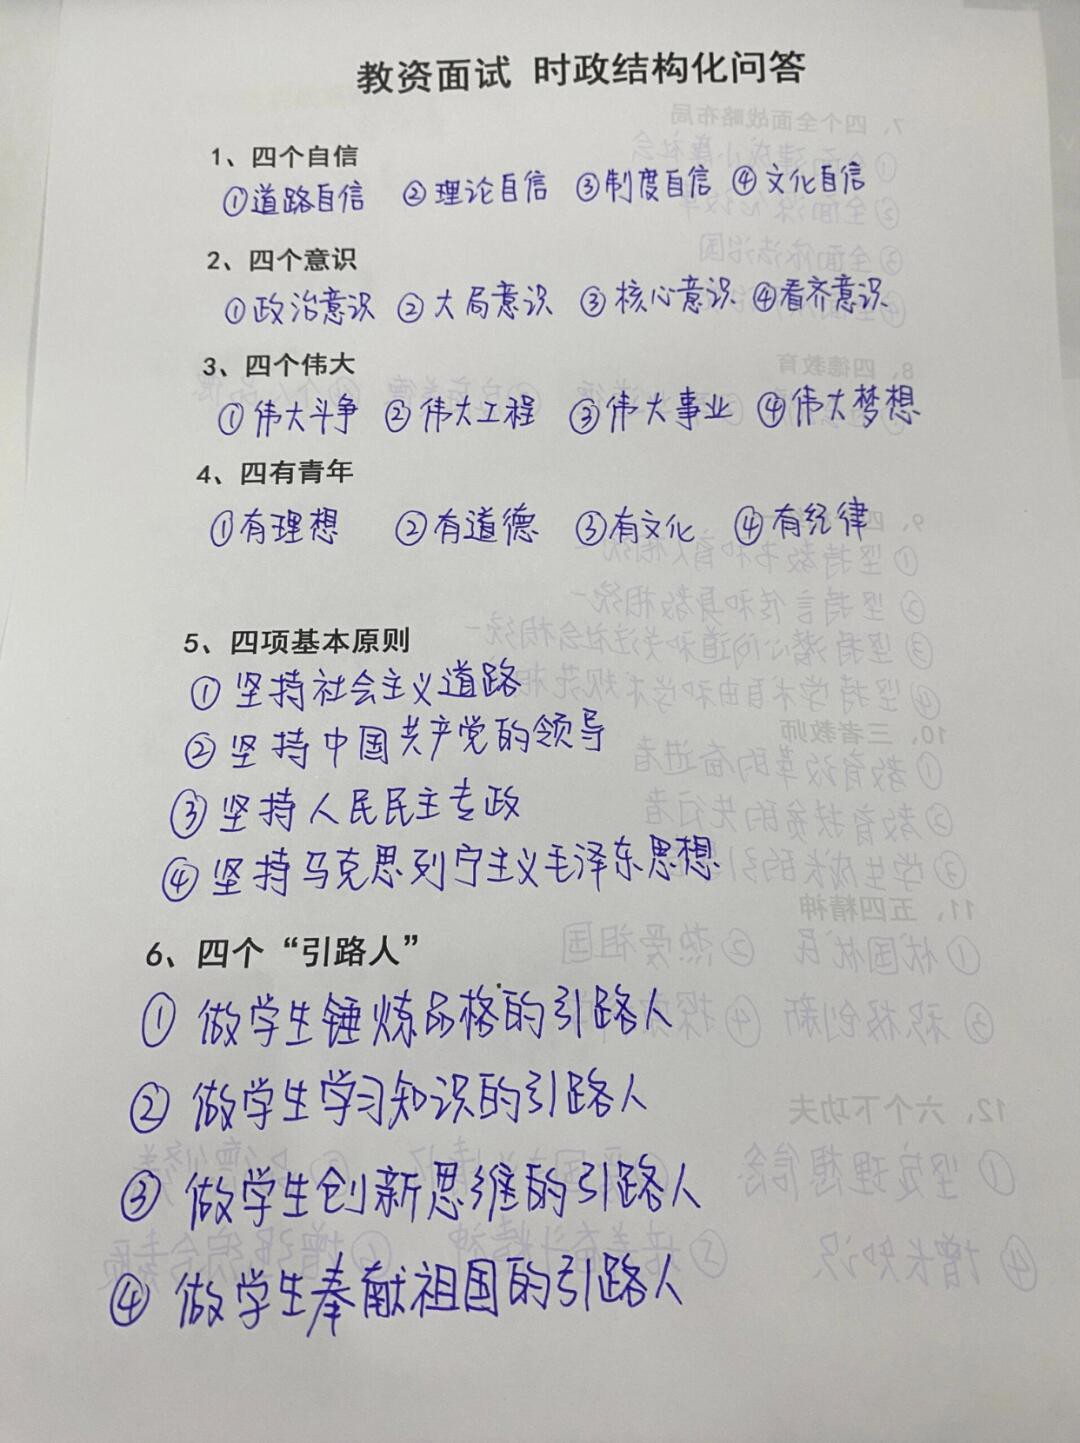 教资面试 时政结构化问答
1、四个自信
①道路自信 ②理论自信 ③制度自信 ④文化自信
2、四个意识
①政治意识 ②大局意识 ③核心意识 ④看齐意识
3、四个伟大
①伟大斗争 ②伟大工程 ③伟大事业 ④伟大梦想
4、四有青年
①有理想 ②有道德 ③有文化 ④有纪律
5、四项基本原则
①坚持社会主义道路
②坚持中国共产党的领导
③坚持人民民主专政
④坚持马克思列宁主义毛泽东思想
6、四个“引路人”
①做学生锤炼品格的引路人
②做学生学习知识的引路人
③做学生创新思维的引路人
④做学生奉献祖国的引路人